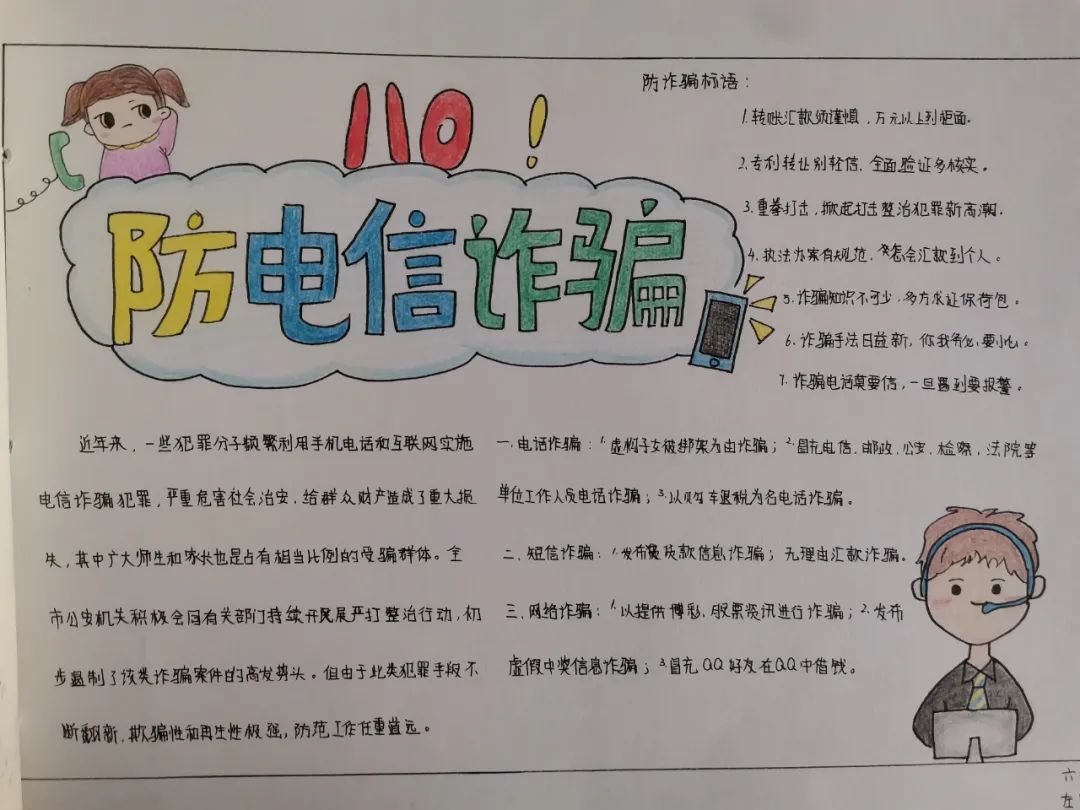 110!
防电信诈骗
防诈骗标语：
1.转账汇款须谨慎，万元以上到柜面.
2.专利转让别轻信、全面验证多核实。
3.重拳打击，掀起打击整治犯罪新高潮.
4.执法办案有规范、怎会汇款到个人。
5.诈骗知识不可少，多方求证保荷包。
6.诈骗手法日益新，你我务必要小心。
7.诈骗电话莫要信，一旦遇到要报警。
近年来，一些犯罪分子频繁利用手机电话和互联网实施
电信诈骗犯罪，严重危害社会治安、给群众财产造成了重大损
失，其中广大师生和家长也是占有相当比例的受骗群体。全
市公安机关积极会同有关部门持续开展严打整治行动，初
步遏制了该类诈骗案件的高发势头。但由于此类犯罪手段不
断翻新、欺骗性和再生性极强，防范工作任重道远。
一.电话诈骗：1.虚构子女被绑架为由诈骗；2.冒充电信、邮政、公安、检察，法院等
单位工作人员电话诈骗；3.以购车退税为名电话诈骗。
二、短信诈骗：1.发布款信息诈骗；无理由汇款诈骗。
三、网络诈骗：1.以提供博彩、股票资讯进行诈骗；2.发布
虚假中奖信息诈骗；3.冒充QQ好友在QQ中借钱。
六
左